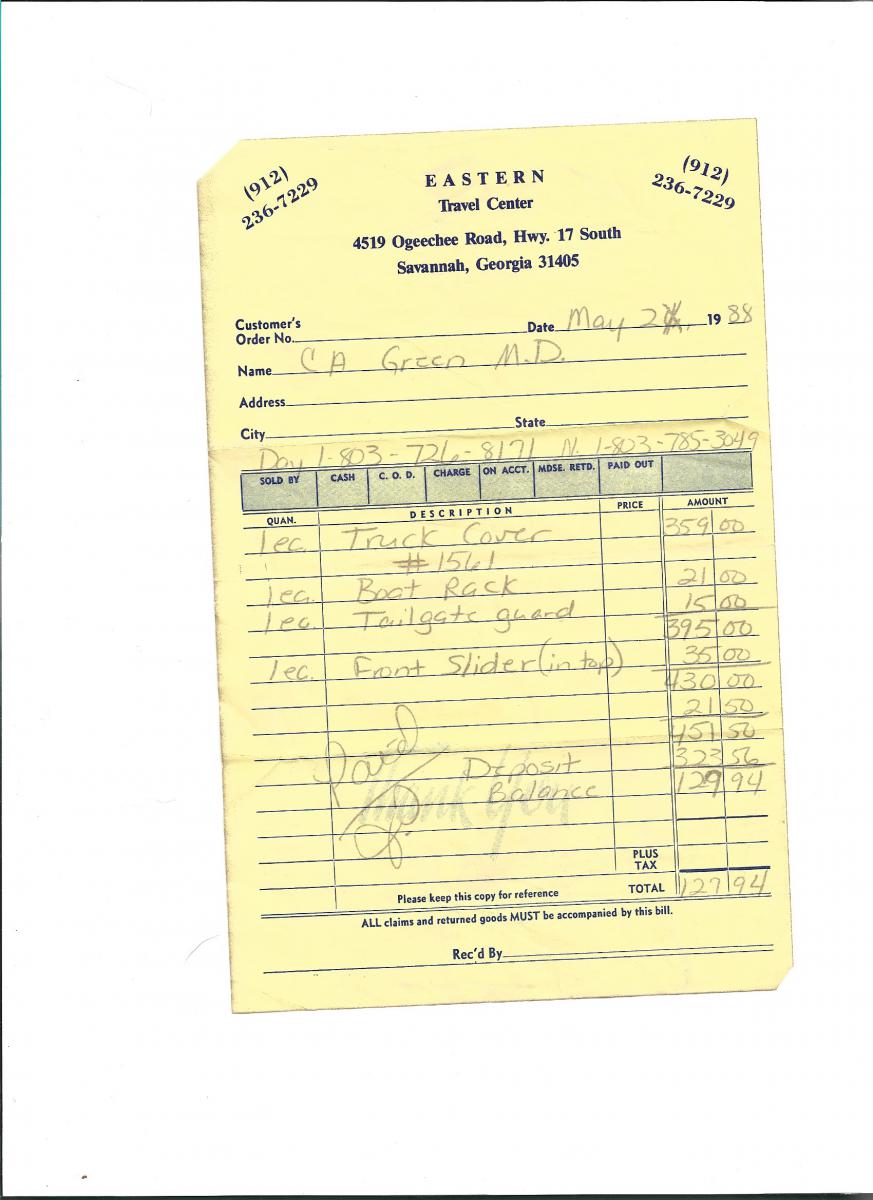 (912)
236-7229
(912)
236-7229
EASTERN
Travel Center
4519 Ogeechee Road, Hwy. 17 South
Savannah, Georgia 31405
Customer's
Order No. Date May 19 88
Name C A Green M.D.
Address
City State
Day 1-803-726-8171 N. 1-803-785-3049
SOLD BY CASH C. O. D. CHARGE ON ACCT. MDSE. RETD. PAID OUT
QUAN. DESCRIPTION PRICE AMOUNT
1ea. Truck Cover 359 00
#1561
1ea. Boat Rack 21 00
1ea. Tailgate guard 15 00
395 00
1ea. Front Slider (in top) 35 00
430 00
21 50
451 50
Paid Deposit 323 56
Balance 129 94
Thank You
PLUS
TAX
Please keep this copy for reference TOTAL 127 94
ALL claims and returned goods MUST be accompanied by this bill.
Rec'd By